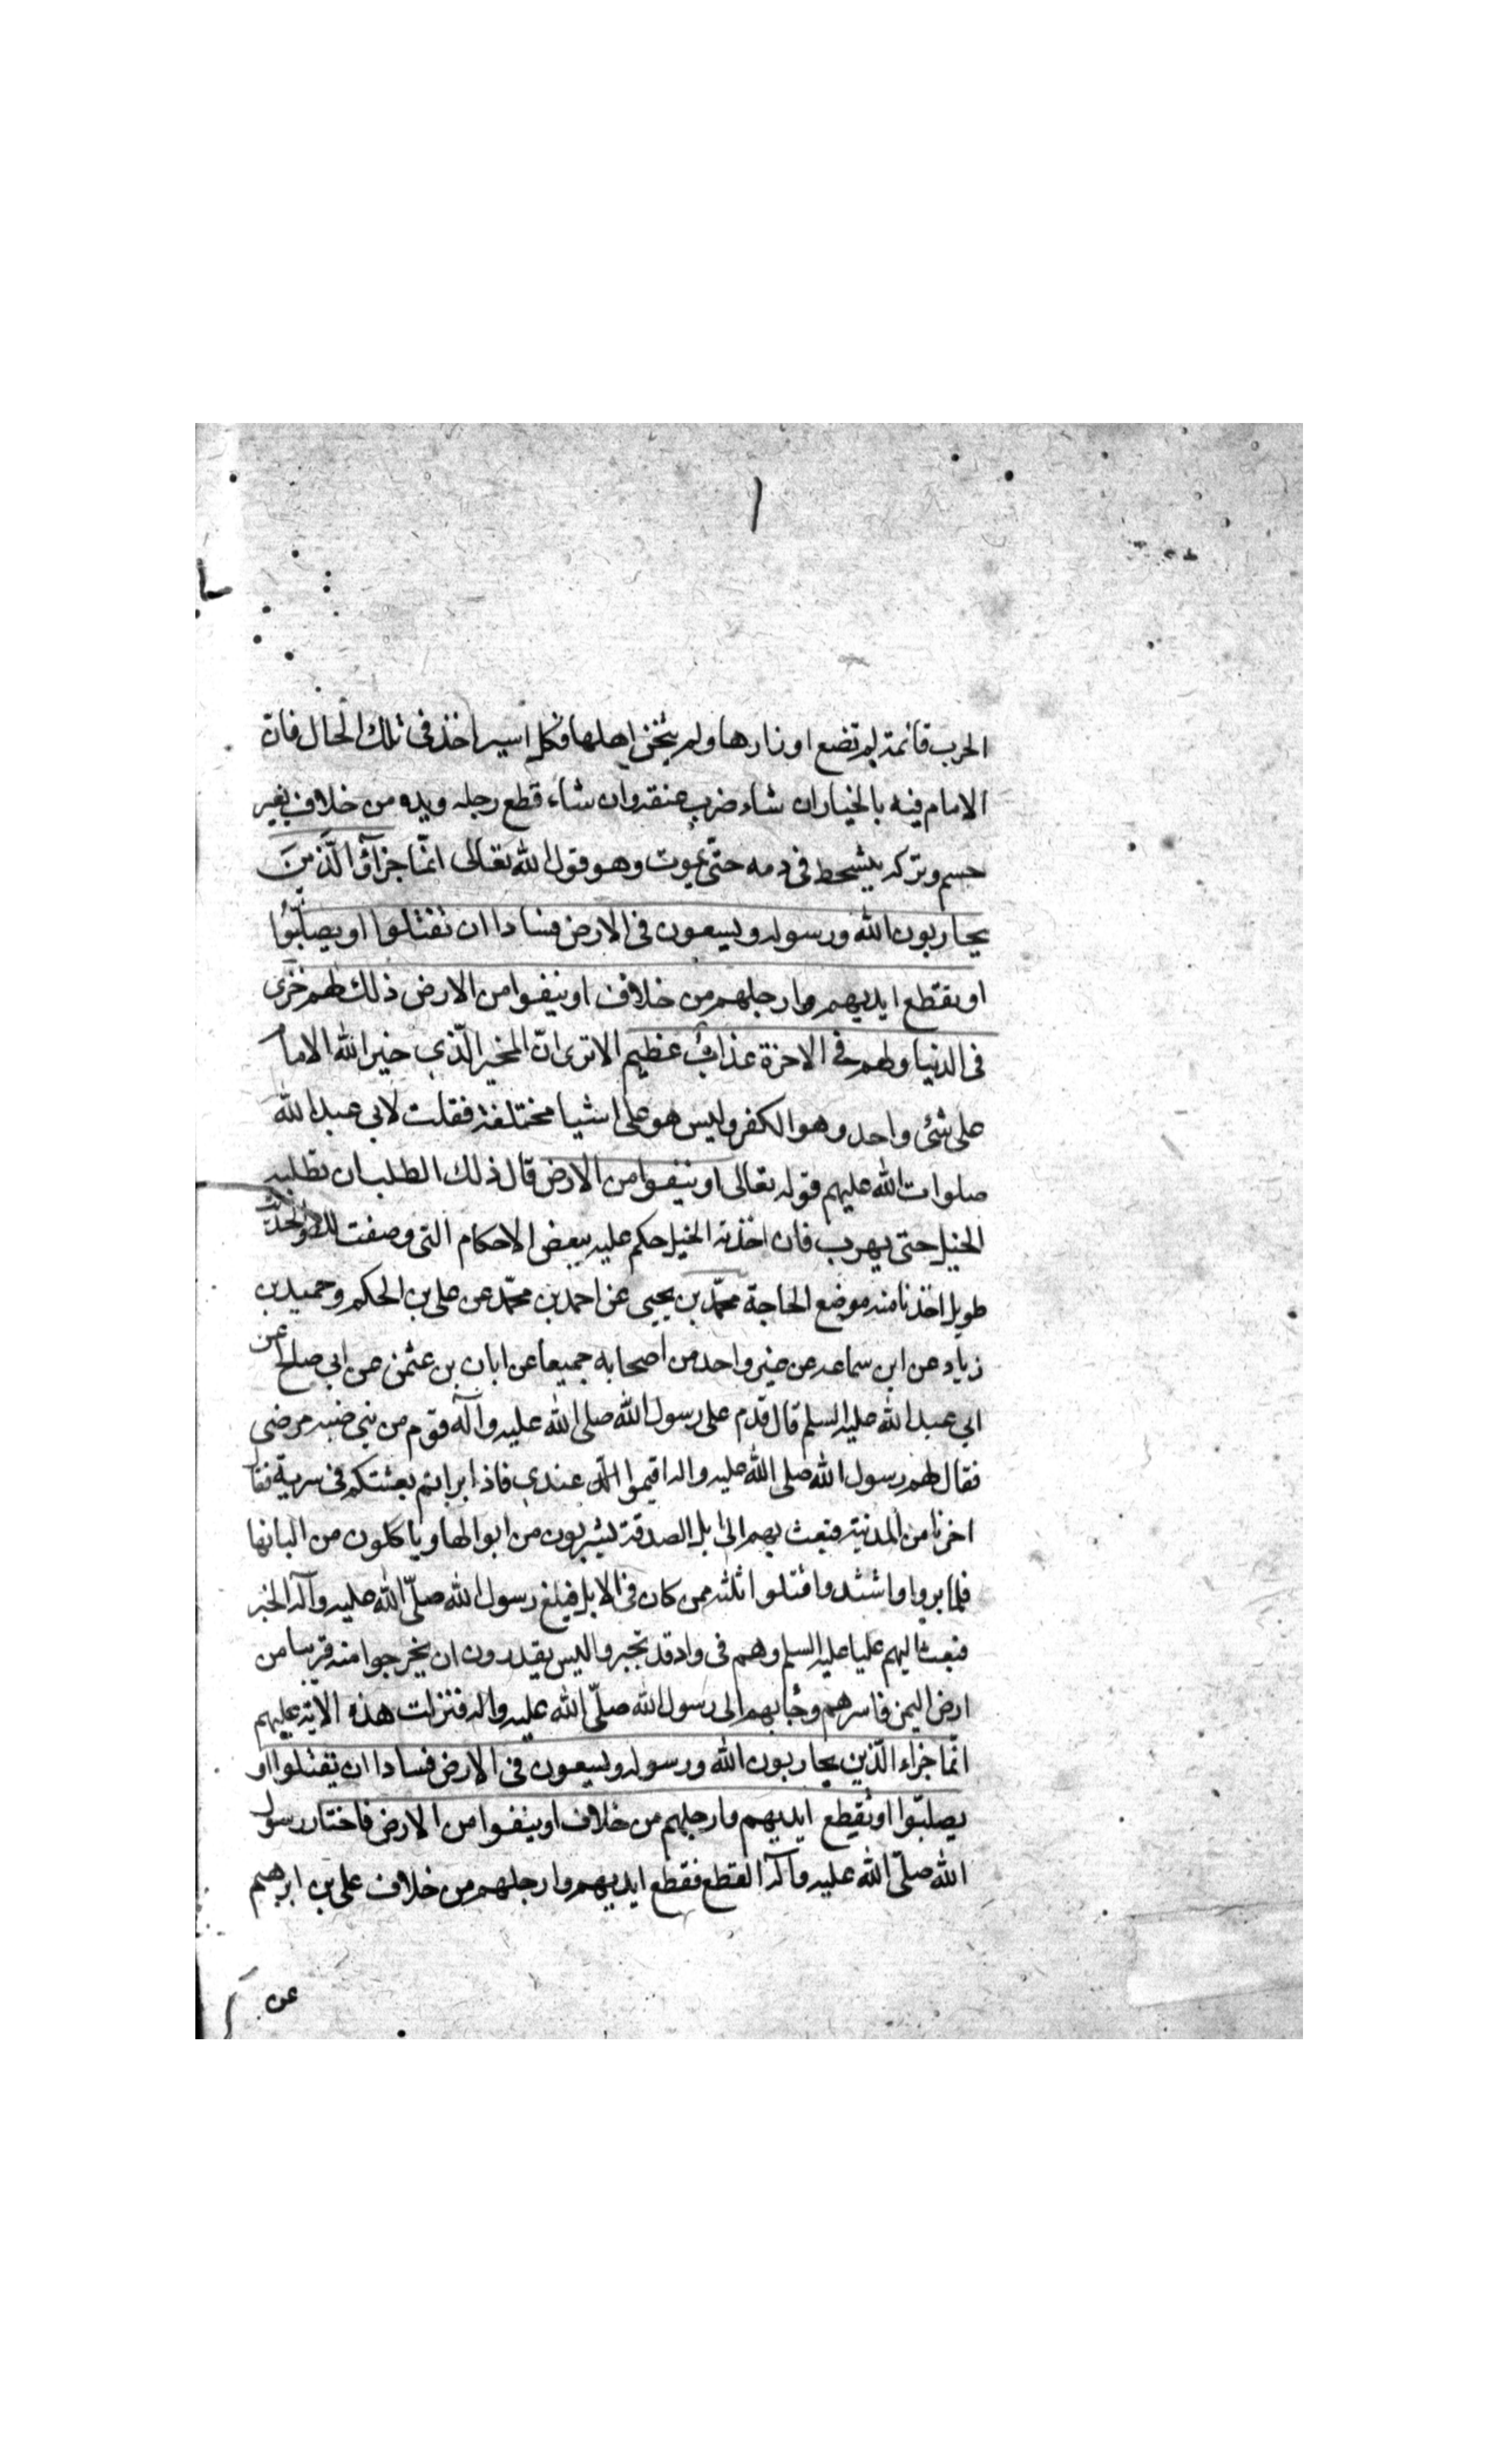 ١
الحرب قائمة لم تضع اوزارها ولم يثخن اهلها فكل اسير اخذ فى تلك الحال فانّ
الامام فيه بالخيار ان شاء ضرب عنقه وان شاء قطع رجله ويده من خلاف بغير
حسم وتركه يتشحط فى دمه حتّى يموت وهو قول الله تعالى انّما جزآؤ الّذين
يحاربون الله ورسوله ويسعون فى الارض فسادا ان تقتلوا او يصلّبوا
او تقطع ايديهم وارجلهم من خلاف او ينفوا من الارض ذلك لهم خزى
فى الدنيا ولهم فى الاخرة عذاب عظيم الا ترى انّ المخير الّذي خير الله الامام
على شئ واحد وهو الكفر وليس هو على اشيا مختلفة فقلت لابي عبد الله
صلوات الله عليهم قوله تعالى او ينفوا من الارض قال ذلك الطلب ان تطلبه
الخيل حتى يهرب فان اخذته الخيل حكم عليه ببعض الاحكام التى وصفت لك والحديث
طويل اخذنا منه موضع الحاجة محمّد بن يحيى عن احمد بن محمّد عن على بن الحكم وحميد بن
زياد عن ابن سماعه عن غير واحد من اصحابه جميعا عن ابان بن عثمن عن ابي صالح عن
ابي عبد الله عليه السلم قال قدم على رسول الله صلى الله عليه وآله قوم من بني ضبه مرضى
فقال لهم رسول الله صلى الله عليه واله اقيموا عندي فاذا براتم بعثتكم فى سرية فقا
اخرنا من المدنية فبعث بهم الى ابل الصدقة يشربون من ابوالها وياكلون من البانها
فلما بروا واشتد واقتلوا ثلثه ممن كان فى الابل فبلغ رسول الله صلّى الله عليه وآله الخبر
فبعث اليهم عليا عليه السلم وهم فى واد قد تحيروا ليس يقدرون ان يخرجوا منه قريبا من
ارض اليمن فاسرهم وجا بهم الى رسول الله صلّى الله عليه واله فنزلت هذه الاية عليهم
انّما جزاء الّذين يحاربون الله ورسوله ويسعون فى الارض فسادا ان يقتلوا او
يصلبّوا او تقطع ايديهم وارجلهم من خلاف او ينفوا من الارض فاختار رسول
الله صلّى الله عليه وآله القطع فقطع ايديهم وارجلهم من خلاف على بن ابرهيم
عن